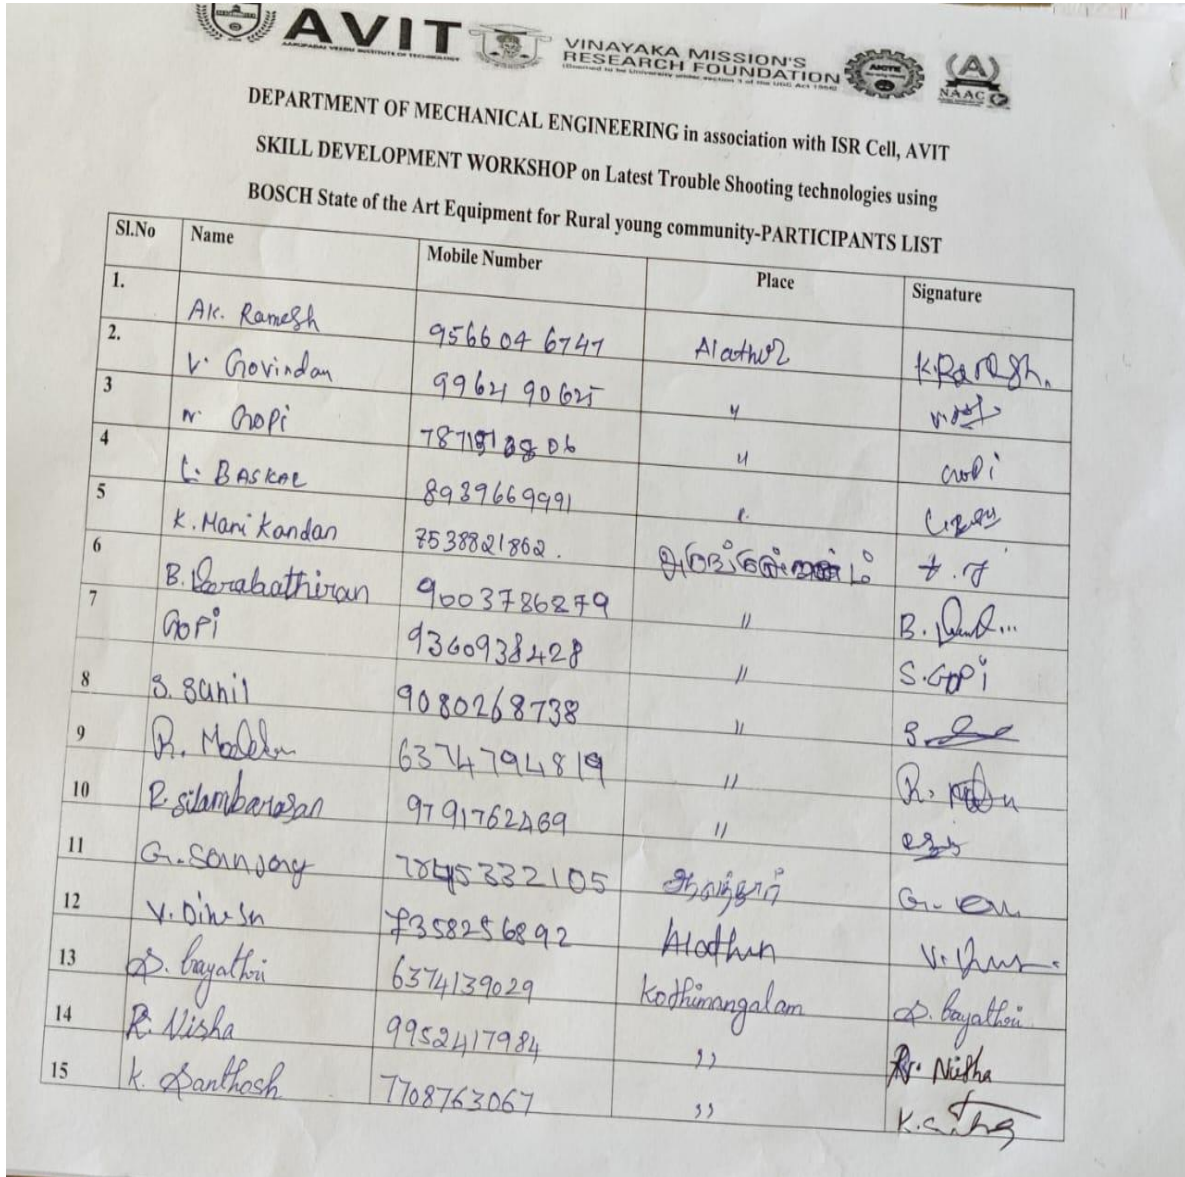 AVIT
AARUPADAI VEEDU INSTITUTE OF TECHNOLOGY
VINAYAKA MISSION'S
RESEARCH FOUNDATION
(Deemed to be University under section 3 of the UGC Act 1956)
AICTE
NAAC
DEPARTMENT OF MECHANICAL ENGINEERING in association with ISR Cell, AVIT
SKILL DEVELOPMENT WORKSHOP on Latest Trouble Shooting technologies using
BOSCH State of the Art Equipment for Rural young community-PARTICIPANTS LIST
Sl.No Name Mobile Number Place Signature
1. AK. Ramesh 9566046747 Alathur K.Ramesh.
2. V. Govindan 9962190625 "
3 N. Gopi " Gopi
4 L. BASKAR 8939669991
5 K. Manikandan 7538821862.
6 B. 9003786279 " B.
7 Gopi 9360938428 " S.GOPi
8 S. Sunil 9080268738 " S.
9 R. 6374794819 " R.
10 R. Silambarasan 9791762469 "
11 G. Sanjay 7845332105 ஆலத்தூர் G.
12 V. Dinesh 7358256892 Alathur V.
13 S. Gayathri 6374139029 Kothimangalam S. Gayathri
14 R. Nisha 9952417984 ,, R. Nisha
15 K. Santhosh 7708763067 ,,